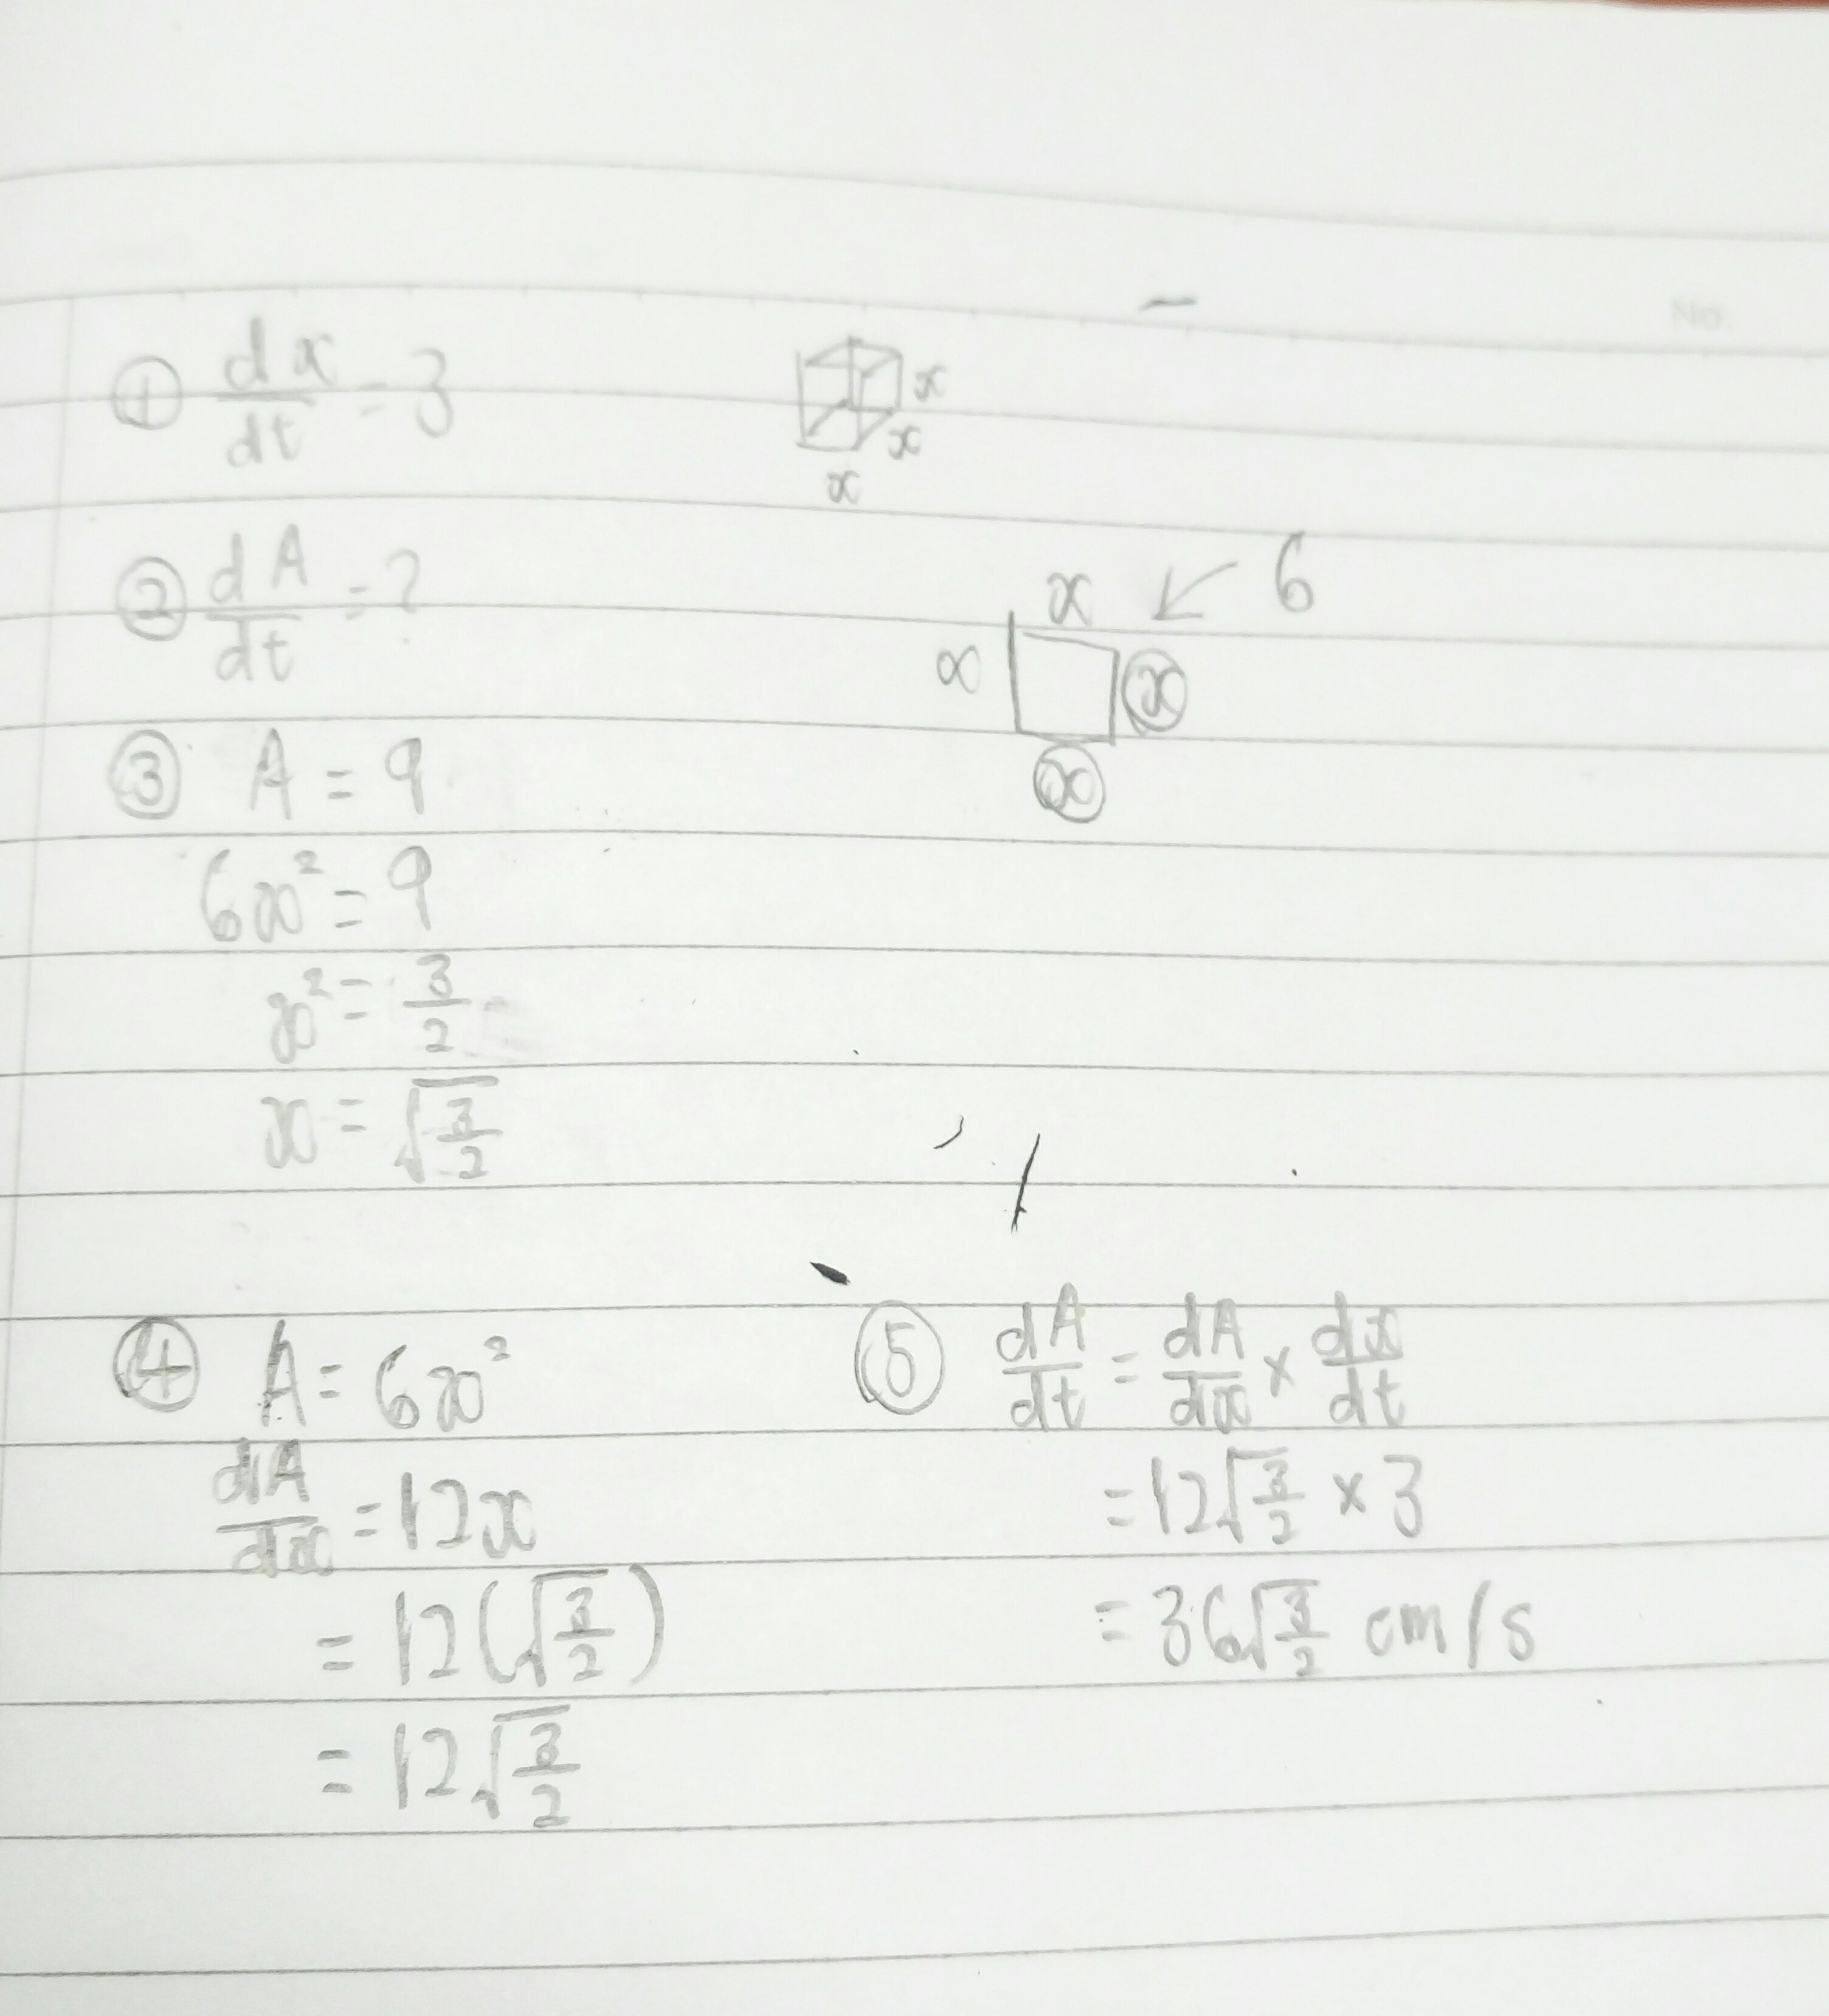 No.
① dx/dt = 3
x
x
x
② dA/dt = ?
x ← 6
x
x
x
③ A = 9
6x² = 9
x² = 3/2
x = √(3/2)
④ A = 6x²
dA/dx = 12x
= 12(√(3/2))
= 12√(3/2)
⑤ dA/dt = dA/dx × dx/dt
= 12√(3/2) × 3
= 36√(3/2) cm/s